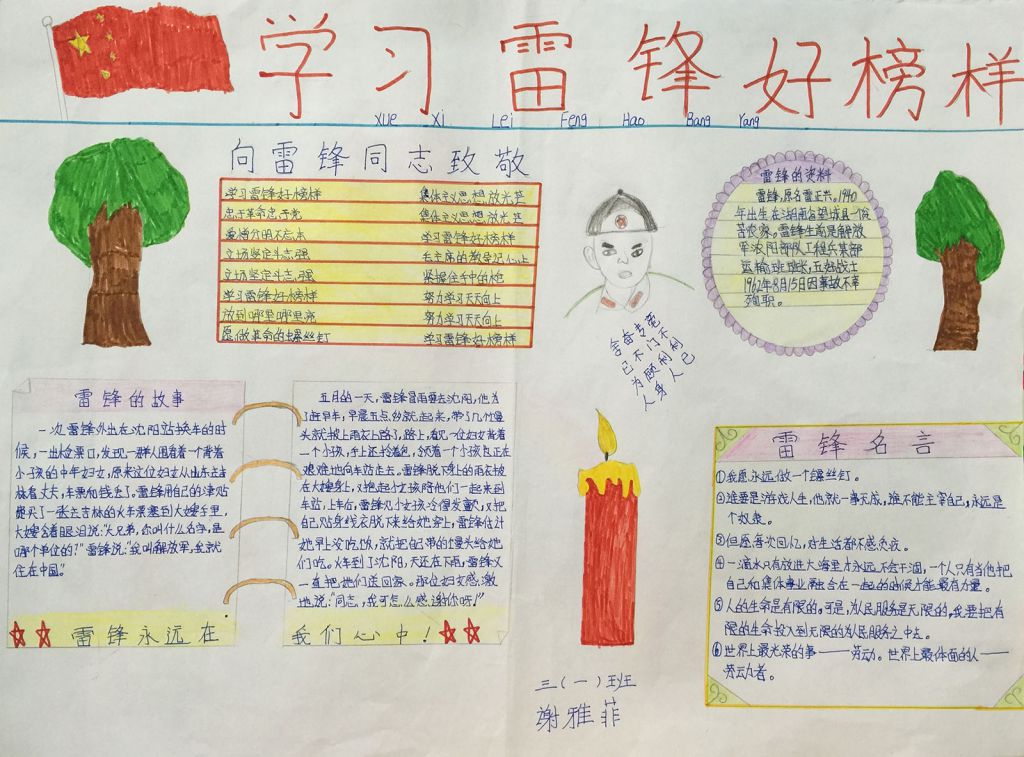 学习雷锋好榜样
xue xi Lei Feng Hao Bang Yang
向雷锋同志致敬
学习雷锋好榜样 集体主义思想放光芒
忠于革命忠于党 集体主义思想放光芒
爱憎分明不忘本 学习雷锋好榜样
立场坚定斗志强 毛主席的教导记心上
立场坚定斗志强 紧握住手中的枪
学习雷锋好榜样 努力学习天天向上
放到哪里哪里亮 努力学习天天向上
愿做革命的螺丝钉 学习雷锋好榜样
舍己为人
奋不顾身
专门利人
毫不利己
雷锋的资料
雷锋,原名雷正兴。1940
年出生在湖南省望城县一个贫
苦农家。雷锋生前是解放
军沈阳部队工程兵某部
运输班班长,五好战士
1962年8月15日因事故不幸
殉职。
雷锋的故事
一次雷锋外出在沈阳站换车的时
候,一出检票口,发现一群人围着一个背着
小孩的中年妇女,原来这位妇女从山东去吉
林看丈夫,车票和钱丢了。雷锋用自己的津贴
费买了一张去吉林的火车票塞到大嫂手里,
大嫂含着眼泪说:“大兄弟,你叫什么名字,是
哪个单位的?”雷锋说:“我叫解放军,我就
住在中国。”
五月的一天,雷锋冒雨要去沈阳,他为
了赶早车,早晨五点多就起来,带了几个馒
头就披上雨衣上路了,路上,看见一位妇女背着
一个小孩,手上还拎着包,领着一个小孩也正在
艰难地向车站走去。雷锋脱下身上的雨衣披
在大嫂身上,又抱起小女孩陪他们一起来到车
站,上车后,雷锋见小女孩冷得发颤,又把
自己贴身线衣脱下来给她穿上,雷锋估计
她早上没吃饭,就把自己带的馒头给她
们吃。火车到了沈阳,天还在下雨,雷锋又
一直把她们送回家。那位妇女感激
地说:“同志,我可怎么感谢你呀!”
雷锋永远在 我们心中!
雷锋名言
①我愿永远做一个螺丝钉。
②谁要是游戏人生,他就一事无成,谁不能主宰自己,永远是
个奴隶。
③但愿每次回忆,对生活都不感负疚。
④一滴水只有放进大海里才永远不会干涸,一个人只有当他把
自己和集体事业融合在一起的时候才能最有力量。
⑤人的生命是有限的。可是,为人民服务是无限的,我要把有
限的生命,投入到无限的为人民服务之中去。
⑥世界上最光荣的事——劳动。世界上最体面的人——
劳动者。
三(一)班
谢雅菲